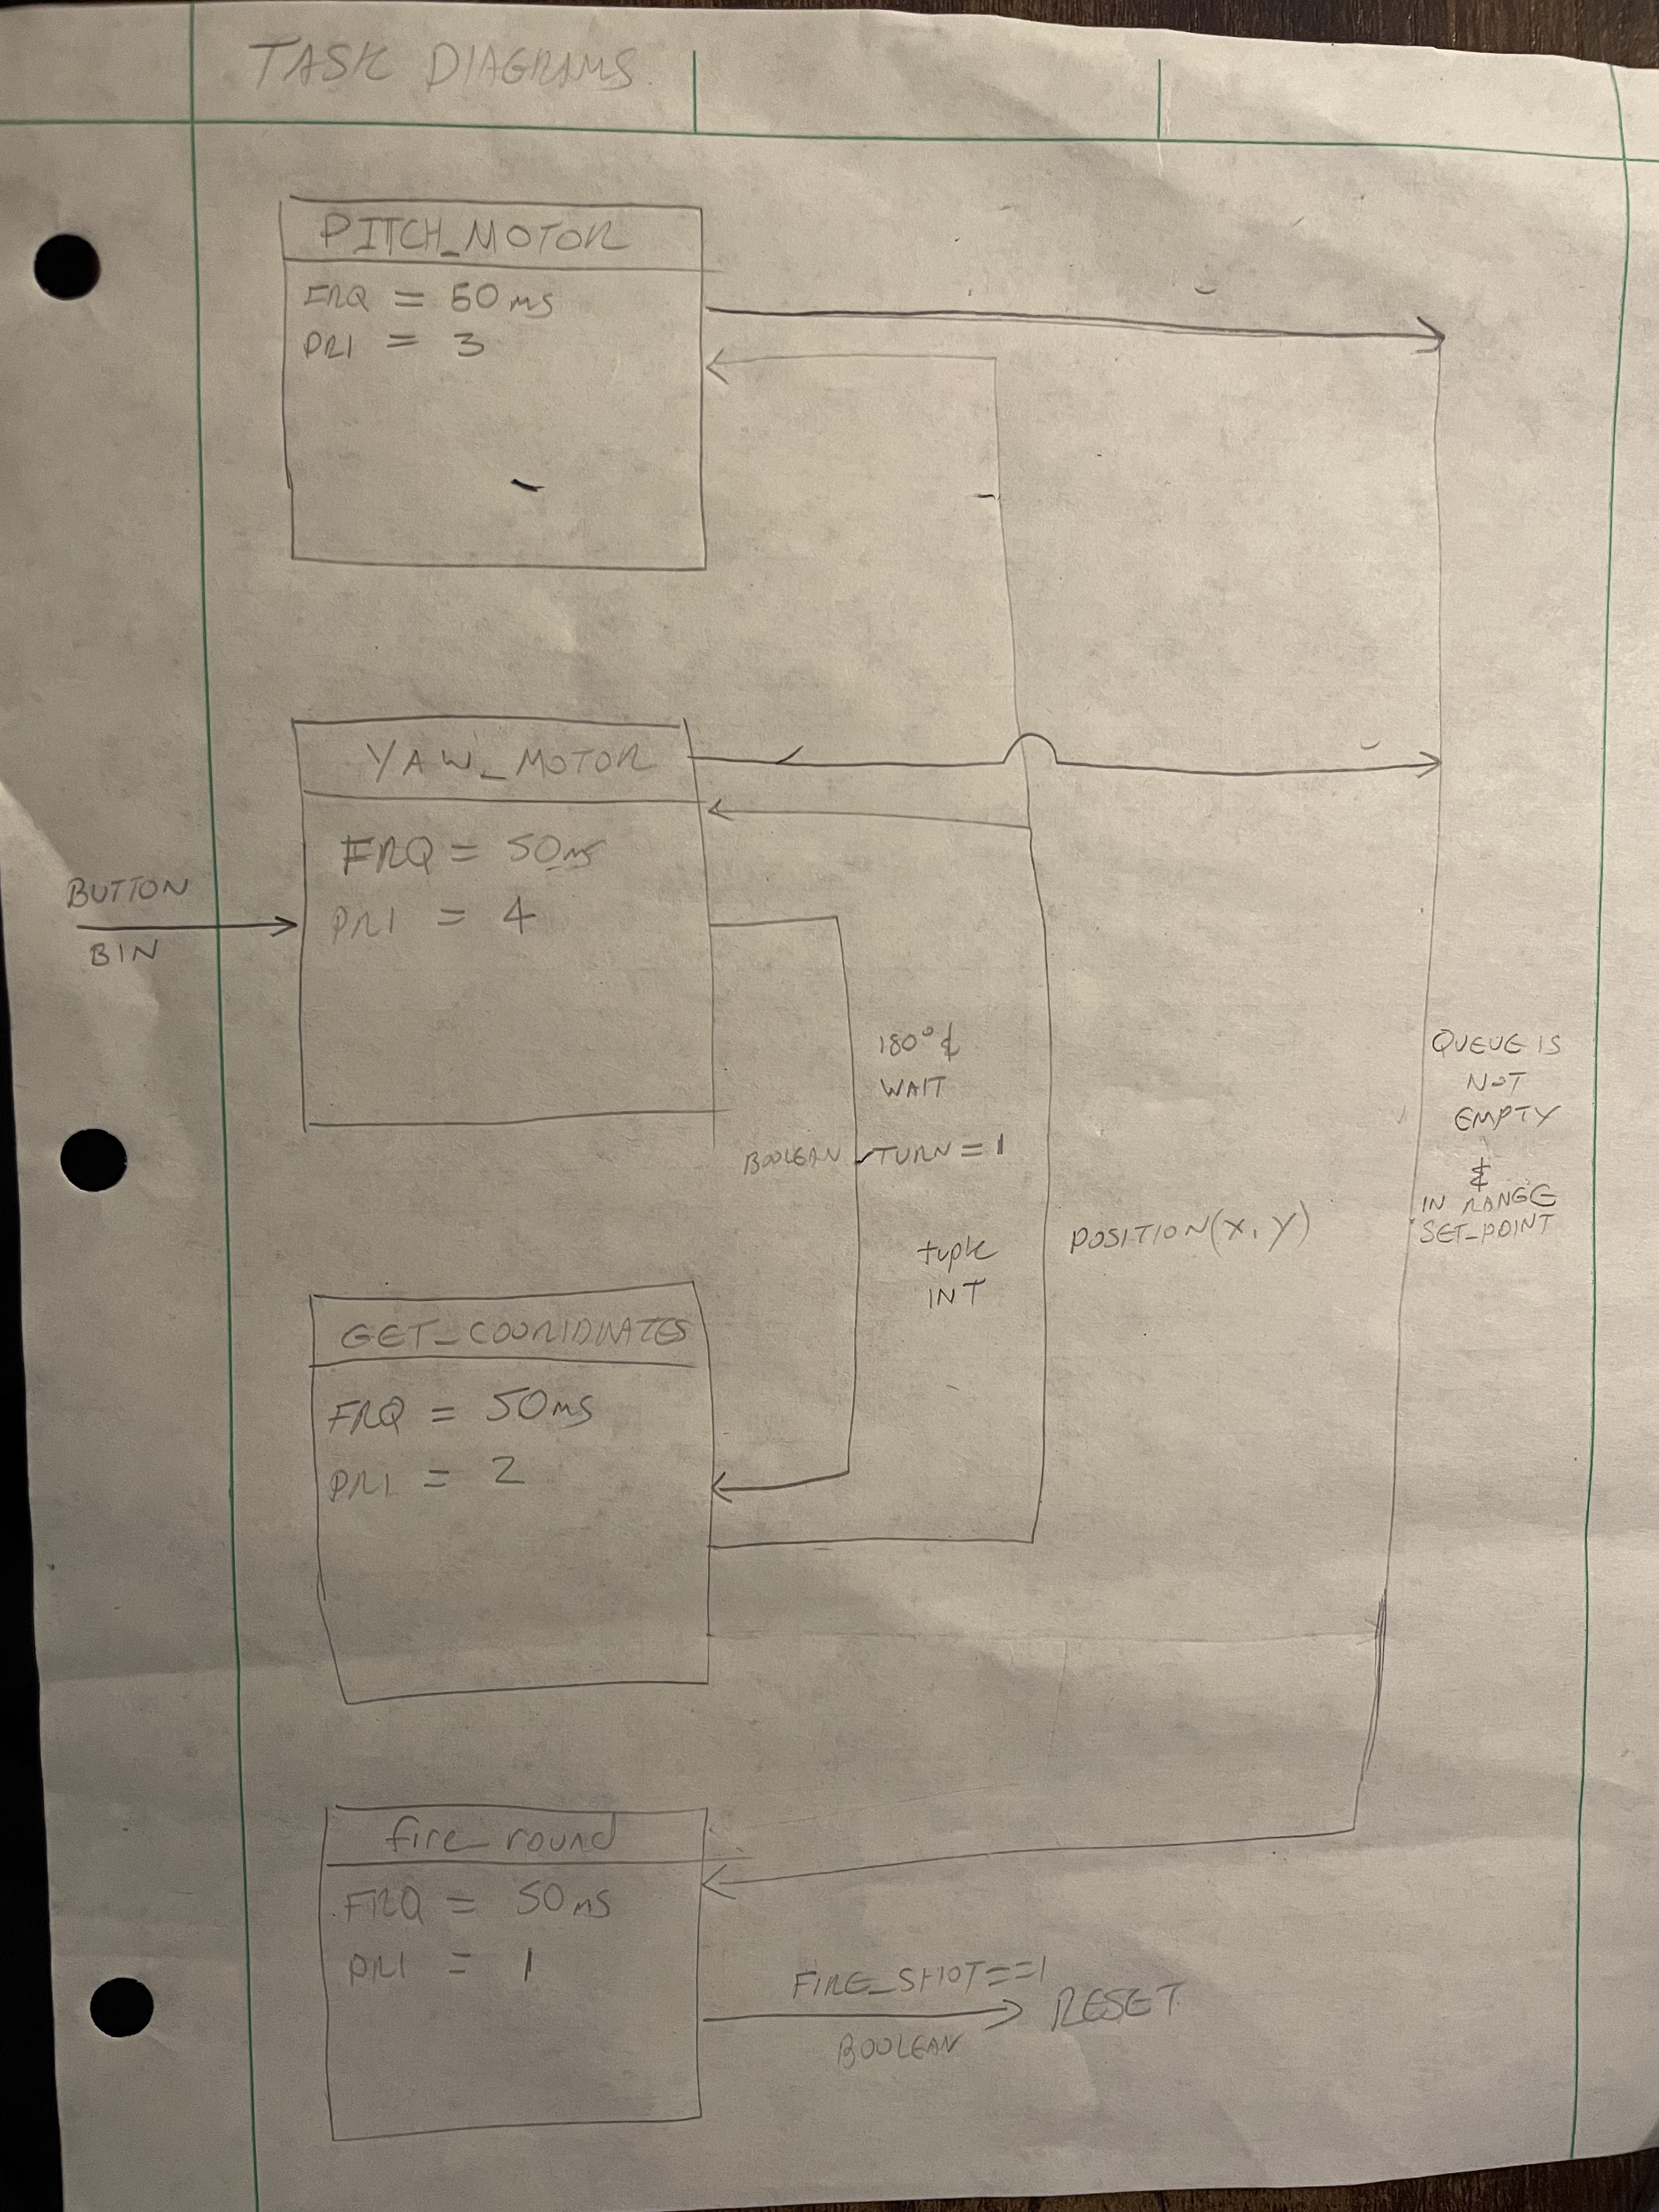 TASK DIAGRAMS
PITCH_MOTOR
FRQ = 50ms
PRI = 3
YAW_MOTOR
FRQ = 50ms
PRI = 4
BUTTON
BIN
180° &
WAIT
BOOLEAN TURN = 1
tuple
INT
POSITION(X, Y)
QUEUE IS
NOT
EMPTY
&
IN RANGE
SET_POINT
GET_COORIDINATES
FRQ = 50ms
PRI = 2
fire_round
FRQ = 50ms
PRI = 1
FIRE_SHOT==1
BOOLEAN
RESET